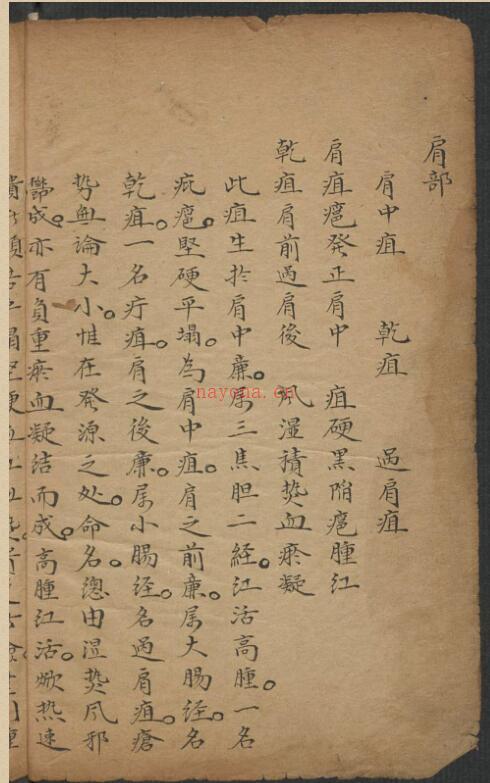 肩部
肩中疽 乾疽 過肩疽
肩疽癰発正肩中 疽硬黑陷癰腫红
乾疽肩前過肩後 風湿積熱血瘀凝
此疽生於肩中廉。属三焦胆二経。红活高腫。一名
疵癰。堅硬平塌。為肩中疽。肩之前廉。属大腸経。名
乾疽。一名疔疽。肩之後廉。属小腸经。名過肩疽。瘡
势無論大小。惟在発源之处命名。總由湿熱風邪
欝成。亦有負重瘀血凝结而成。高腫红活。焮热速
nayona.cn